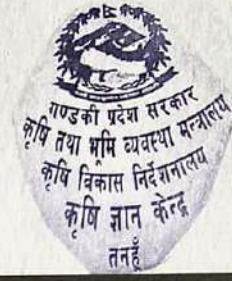 गण्डकी प्रदेश सरकार
कृषि तथा भूमि व्यवस्था मन्त्रालय
कृषि विकास निर्देशनालय
कृषि ज्ञान केन्द्र
तनहुँ